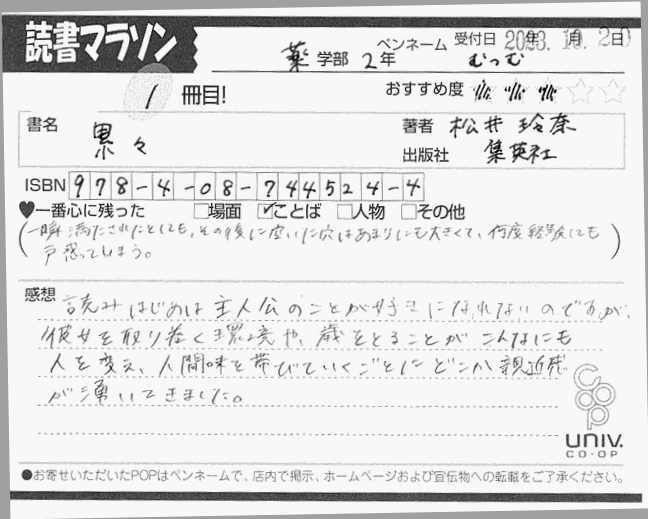 読書マラソン
薬 学部 2年
ペンネーム むっむ
受付日 2023年10月20日
1 冊目!
おすすめ度
書名 累々
著者 松井玲奈
出版社 集英社
ISBN 978-4-08-744524-4
♥一番心に残った □場面 ☑ことば □人物 □その他
(一瞬満たされたとしても、その後に空いた穴はあまりにも大きくて、何度経験しても
戸惑ってしまう。)
感想 読みはじめは主人公のことが好きになれないのですが、
彼女を取り巻く環境や、歳をとることがこんなにも
人を変え、人間味を帯びていくごとにどこか親近感
が湧いてきました。
coop
UNIV.
CO-OP
●お寄せいただいたPOPはペンネームで、店内で掲示、ホームページおよび宣伝物への転載をご了承ください。